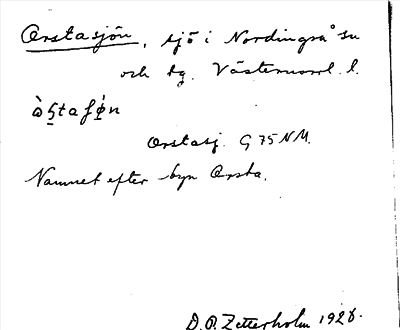 Orstasjön, sjö i Nordingrå sn
och tg. Västernorrl. l.
Orstasj. G 75 NM.
Namnet efter byn Orsta.
D. O. Zetterholm 1926.